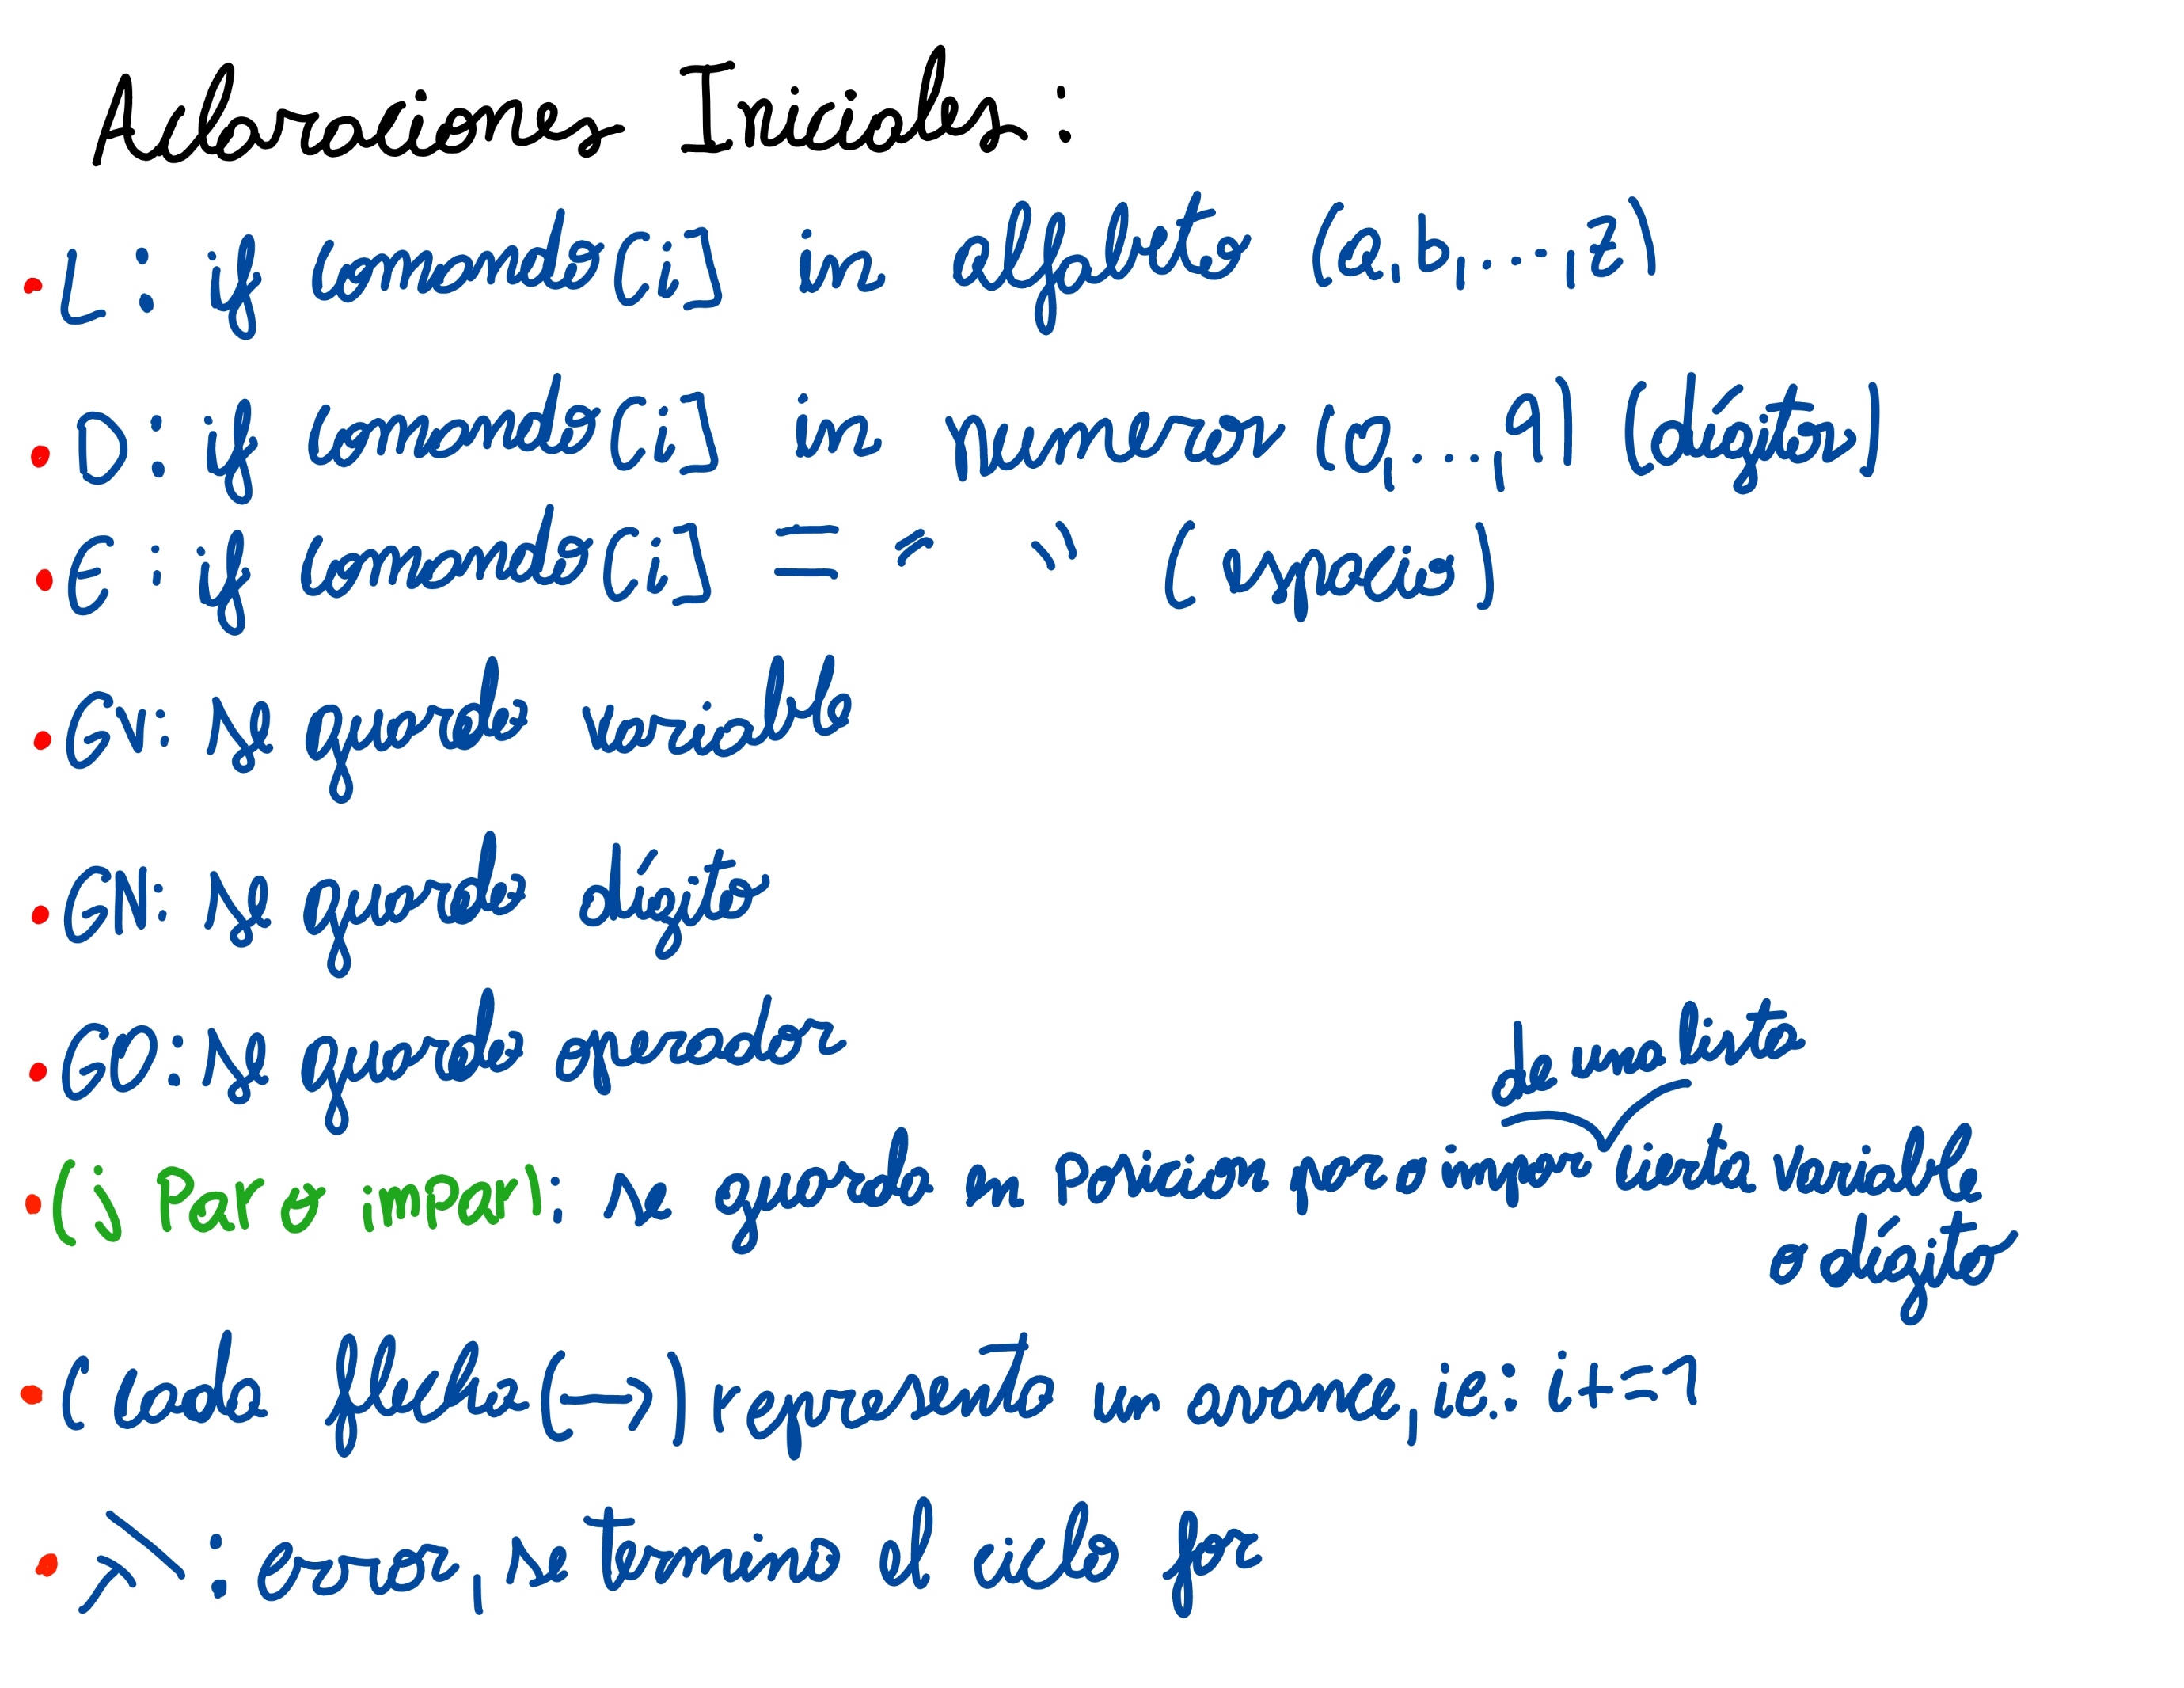 Aclaraciones Iniciales:
• L: if comando[i] in alfabeto (a, b, ..., z)
• D: if comando[i] in numeros (0, ..., 9) (dígitos)
• E: if comando[i] == ' ' (espacio)
• GV: se guarda variable
• GN: se guarda dígito
• GO: se guarda operador
de una lista
• (j Par o impar): se aguarda en posicion par o impar cierta variable
o dígito
• Cada flecha (→) representa un avance, ie: i+=1
• λ: error, se termina el ciclo for